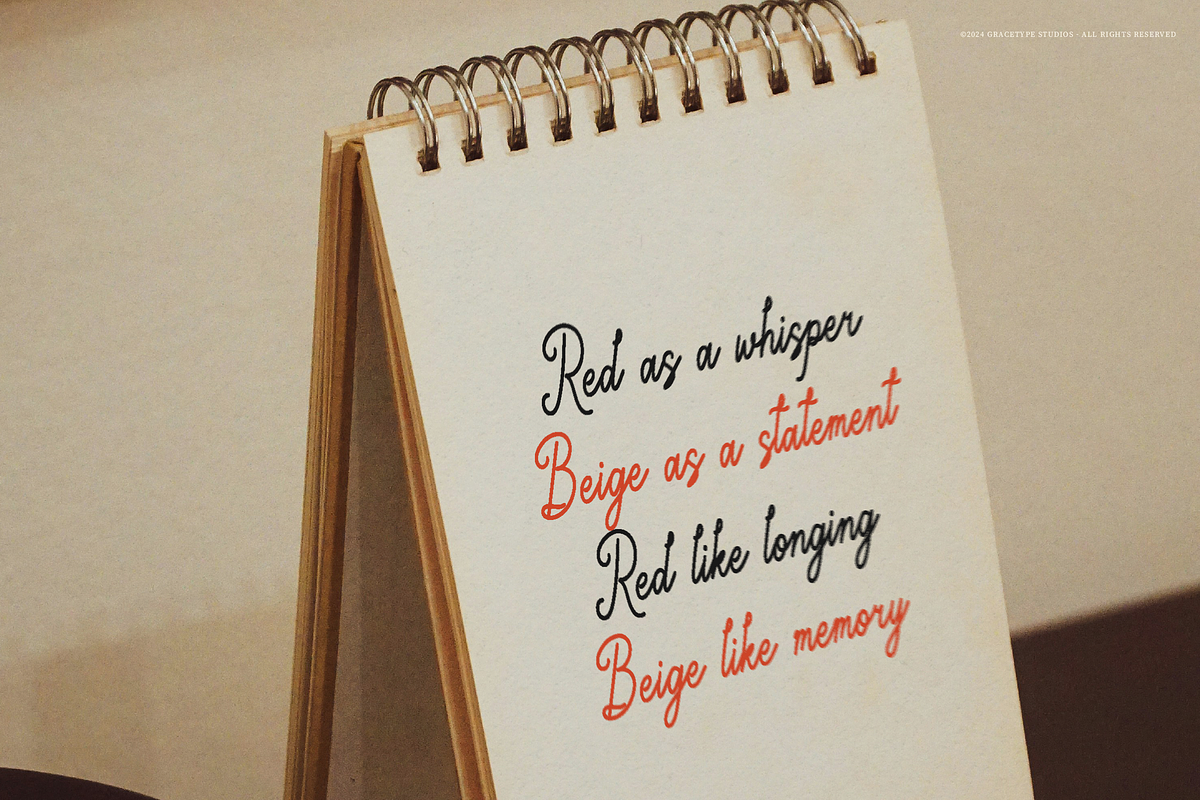 ©2024 GRACETYPE STUDIOS - ALL RIGHTS RESERVED
Red as a whisper
Beige as a statement
Red like longing
Beige like memory